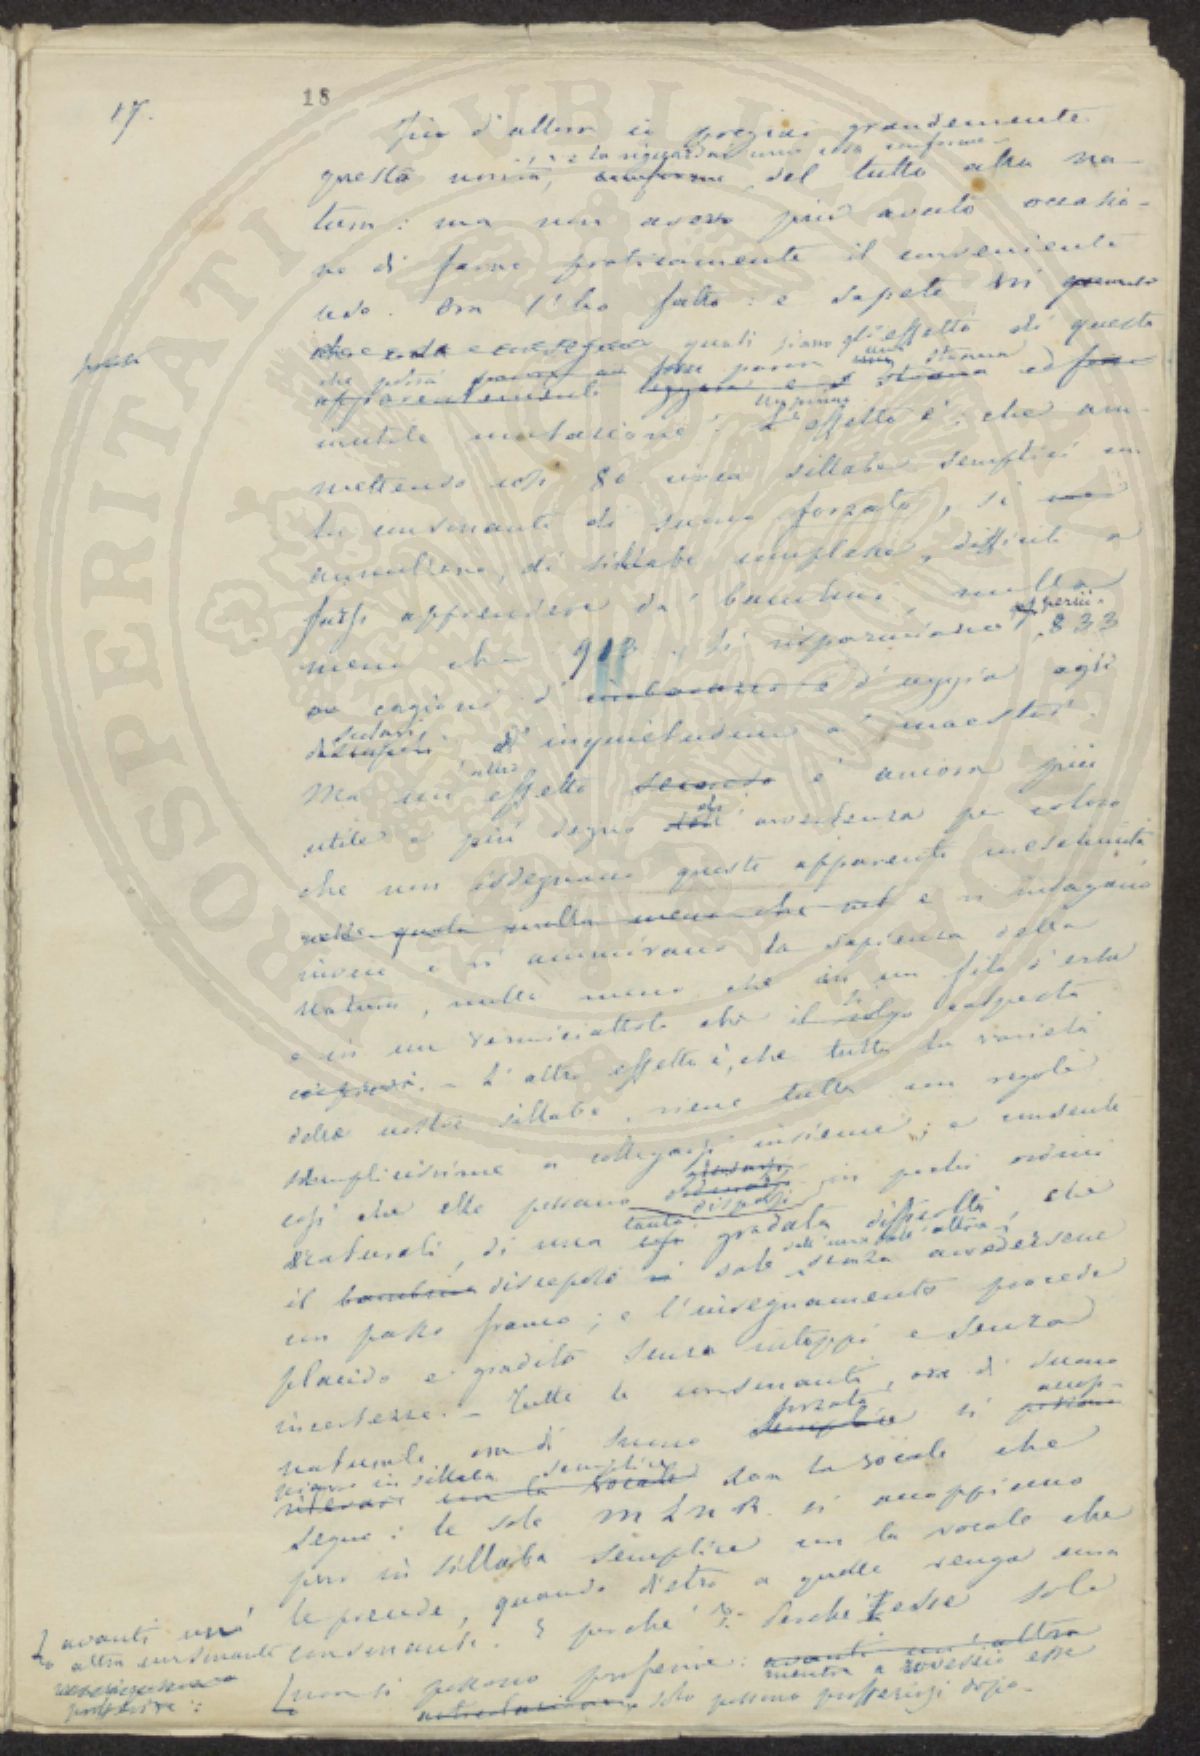 17.
18
d'allora io pregiai grandemente
e la riguardai una cosa conforme
questa novità, conforme del tutto alla na-
tura: ma non avevo più avuto occasio-
ne di farne praticamente il conveniente
uso. Ora l'ho fatto: e sapete
quali siano gli effetti di questa
che possa parer una strana
apparentemente leggera e strana ed
inutile mutazione? L'effetto è, che am-
mettendo così 80 circa sillabe semplici con
la consonante di suono forzato, si
annullano, di sillabe complesse, difficili a
farsi apprendere da' bambini, nulla
meno che 913. Si risparmiano perciò 833
cagioni d'imbarazzo e d'uggia agli
scolari
d'inquietudine a' maestri.
Ma un altro effetto secondo è ancora più
utile e più degno di avvertenza per coloro
che non isdegnano queste apparenti meschinità
nulla meno che nel e vi indagano
invece e vi ammirano la sapienza della
natura, nulla meno che in un filo d'erba
e in un vermiciattolo che il volgo calpesta
. – L'altro effetto è, che tutta la varietà
delle nostre sillabe viene tutta con regole
semplicissime a collegarsi insieme; e consente
così che elle possano disporsi in pochi ordini
naturali, di una tanto così gradata difficoltà, che
il bambino discepolo sale dall'uno all'altro senza avvedersene
con passo franco; e l'insegnamento procede
placido e gradito senza intoppi e senza
incertezze. – Tutte le consonanti, ora di suono
naturale ora di suono semplice forzato si possono accop-
piano in sillaba semplice
con la vocale con la vocale che
segue: le sole M L N R si accoppiano
però in sillaba semplice con la vocale che
le precede, quando dietro a quelle venga una
consonante. E perché? Perché esse sole
non si possono proferire: avanti un'altra
mentre a rovescio esse
solo possono profferirsi dopo.
avanti un'
altra consonante
proferire: